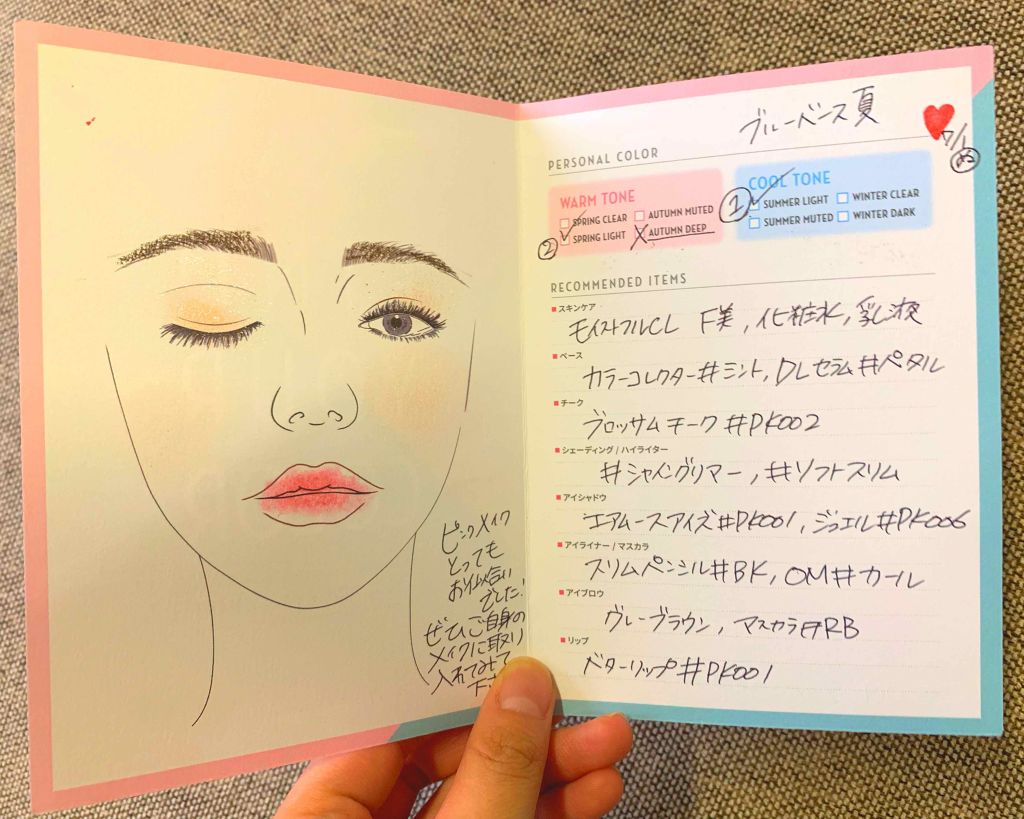 ピンクメイク
とっても
お似合い
でした!
ぜひご自身の
メイクに取り
入れてみて
ブルーベース夏
PERSONAL COLOR
WARM TONE
SPRING CLEAR AUTUMN MUTED
② SPRING LIGHT AUTUMN DEEP
① COOL TONE
SUMMER LIGHT WINTER CLEAR
SUMMER MUTED WINTER DARK
RECOMMENDED ITEMS
スキンケア
モイストフルCL 下美,化粧水,乳液
ベース
カラーコレクター#ミント,DLセラム#ペタル
チーク
ブロッサムチーク#PK002
シェーディング / ハイライター
#シャイングリマー,#ソフトスリム
アイシャドウ
エアムースアイズ#PK001,ジュエル#PK006
アイライナー / マスカラ
スリムペンシル#BK,OM#カール
アイブロウ
グレーブラウン,マスカラ#RB
リップ
ベターリップ#PK001